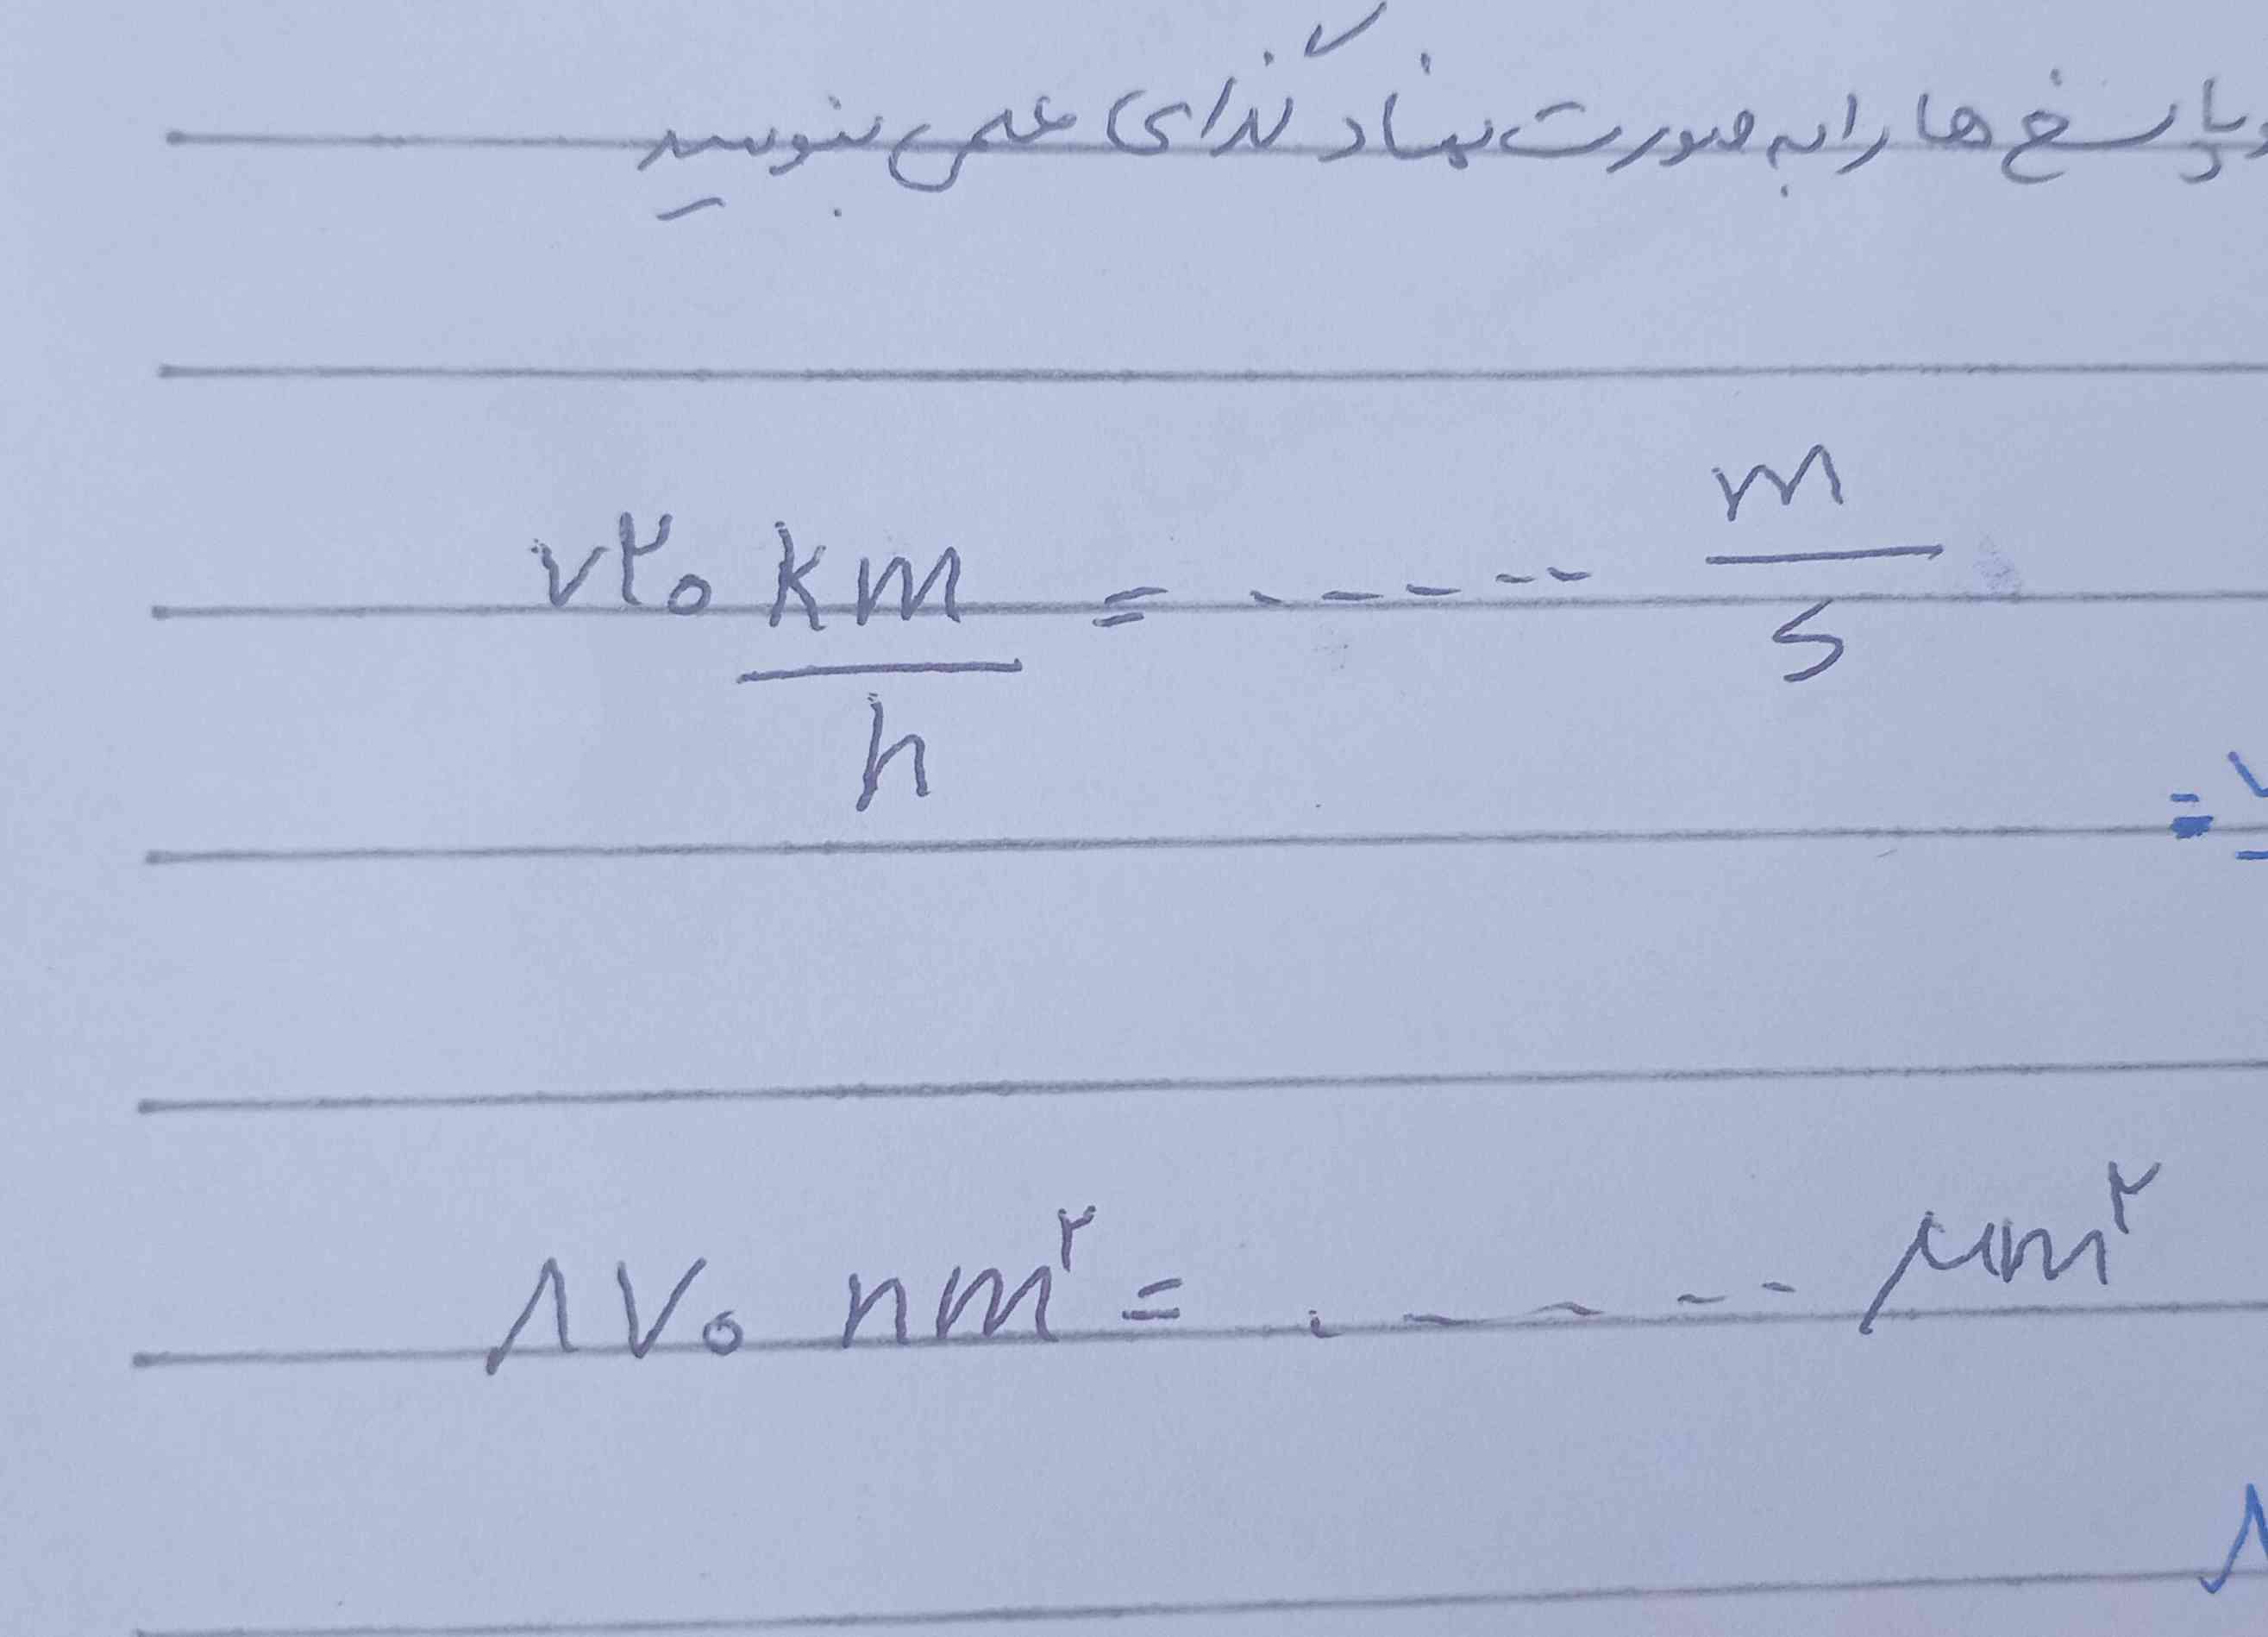 و پاسخ ها را به صورت نماد گذاری علمی بنویسید
۷۲۰ km/h = ------ m/s
=
۸۷۰ nm² = ------ μm²